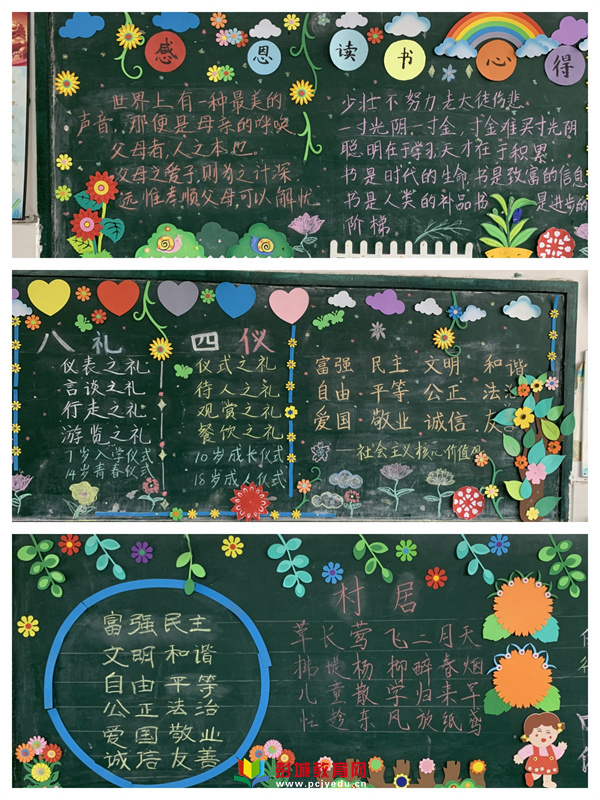 感恩读书心得
世界上有一种最美的
声音,那便是母亲的呼唤
父母者,人之本也。
父母之爱子,则为之计深
远 惟孝顺父母,可以解忧
少壮不努力老大徒伤悲
一寸光阴一寸金,寸金难买寸光阴
聪明在于学习,天才在于积累
书是时代的生命,书是致富的信息
书是人类的补品书 是进步的
阶梯
八礼 四仪
仪表之礼
言谈之礼
行走之礼
游览之礼
7岁入学仪式
14岁青春仪式
仪式之礼
待人之礼
观赏之礼
餐饮之礼
10岁成长仪式
18岁成人仪式
富强 民主 文明 和谐
自由 平等 公正 法
爱国 敬业 诚信 友
——社会主义核心价值观
富强民主
文明和谐
自由平等
公正法治
爱国敬业
诚信友善
村居
草长莺飞二月天
拂堤杨柳醉春烟
儿童散学归来早
忙趁东风放纸鸢
彭城教育网
www.pcjyedu.cn